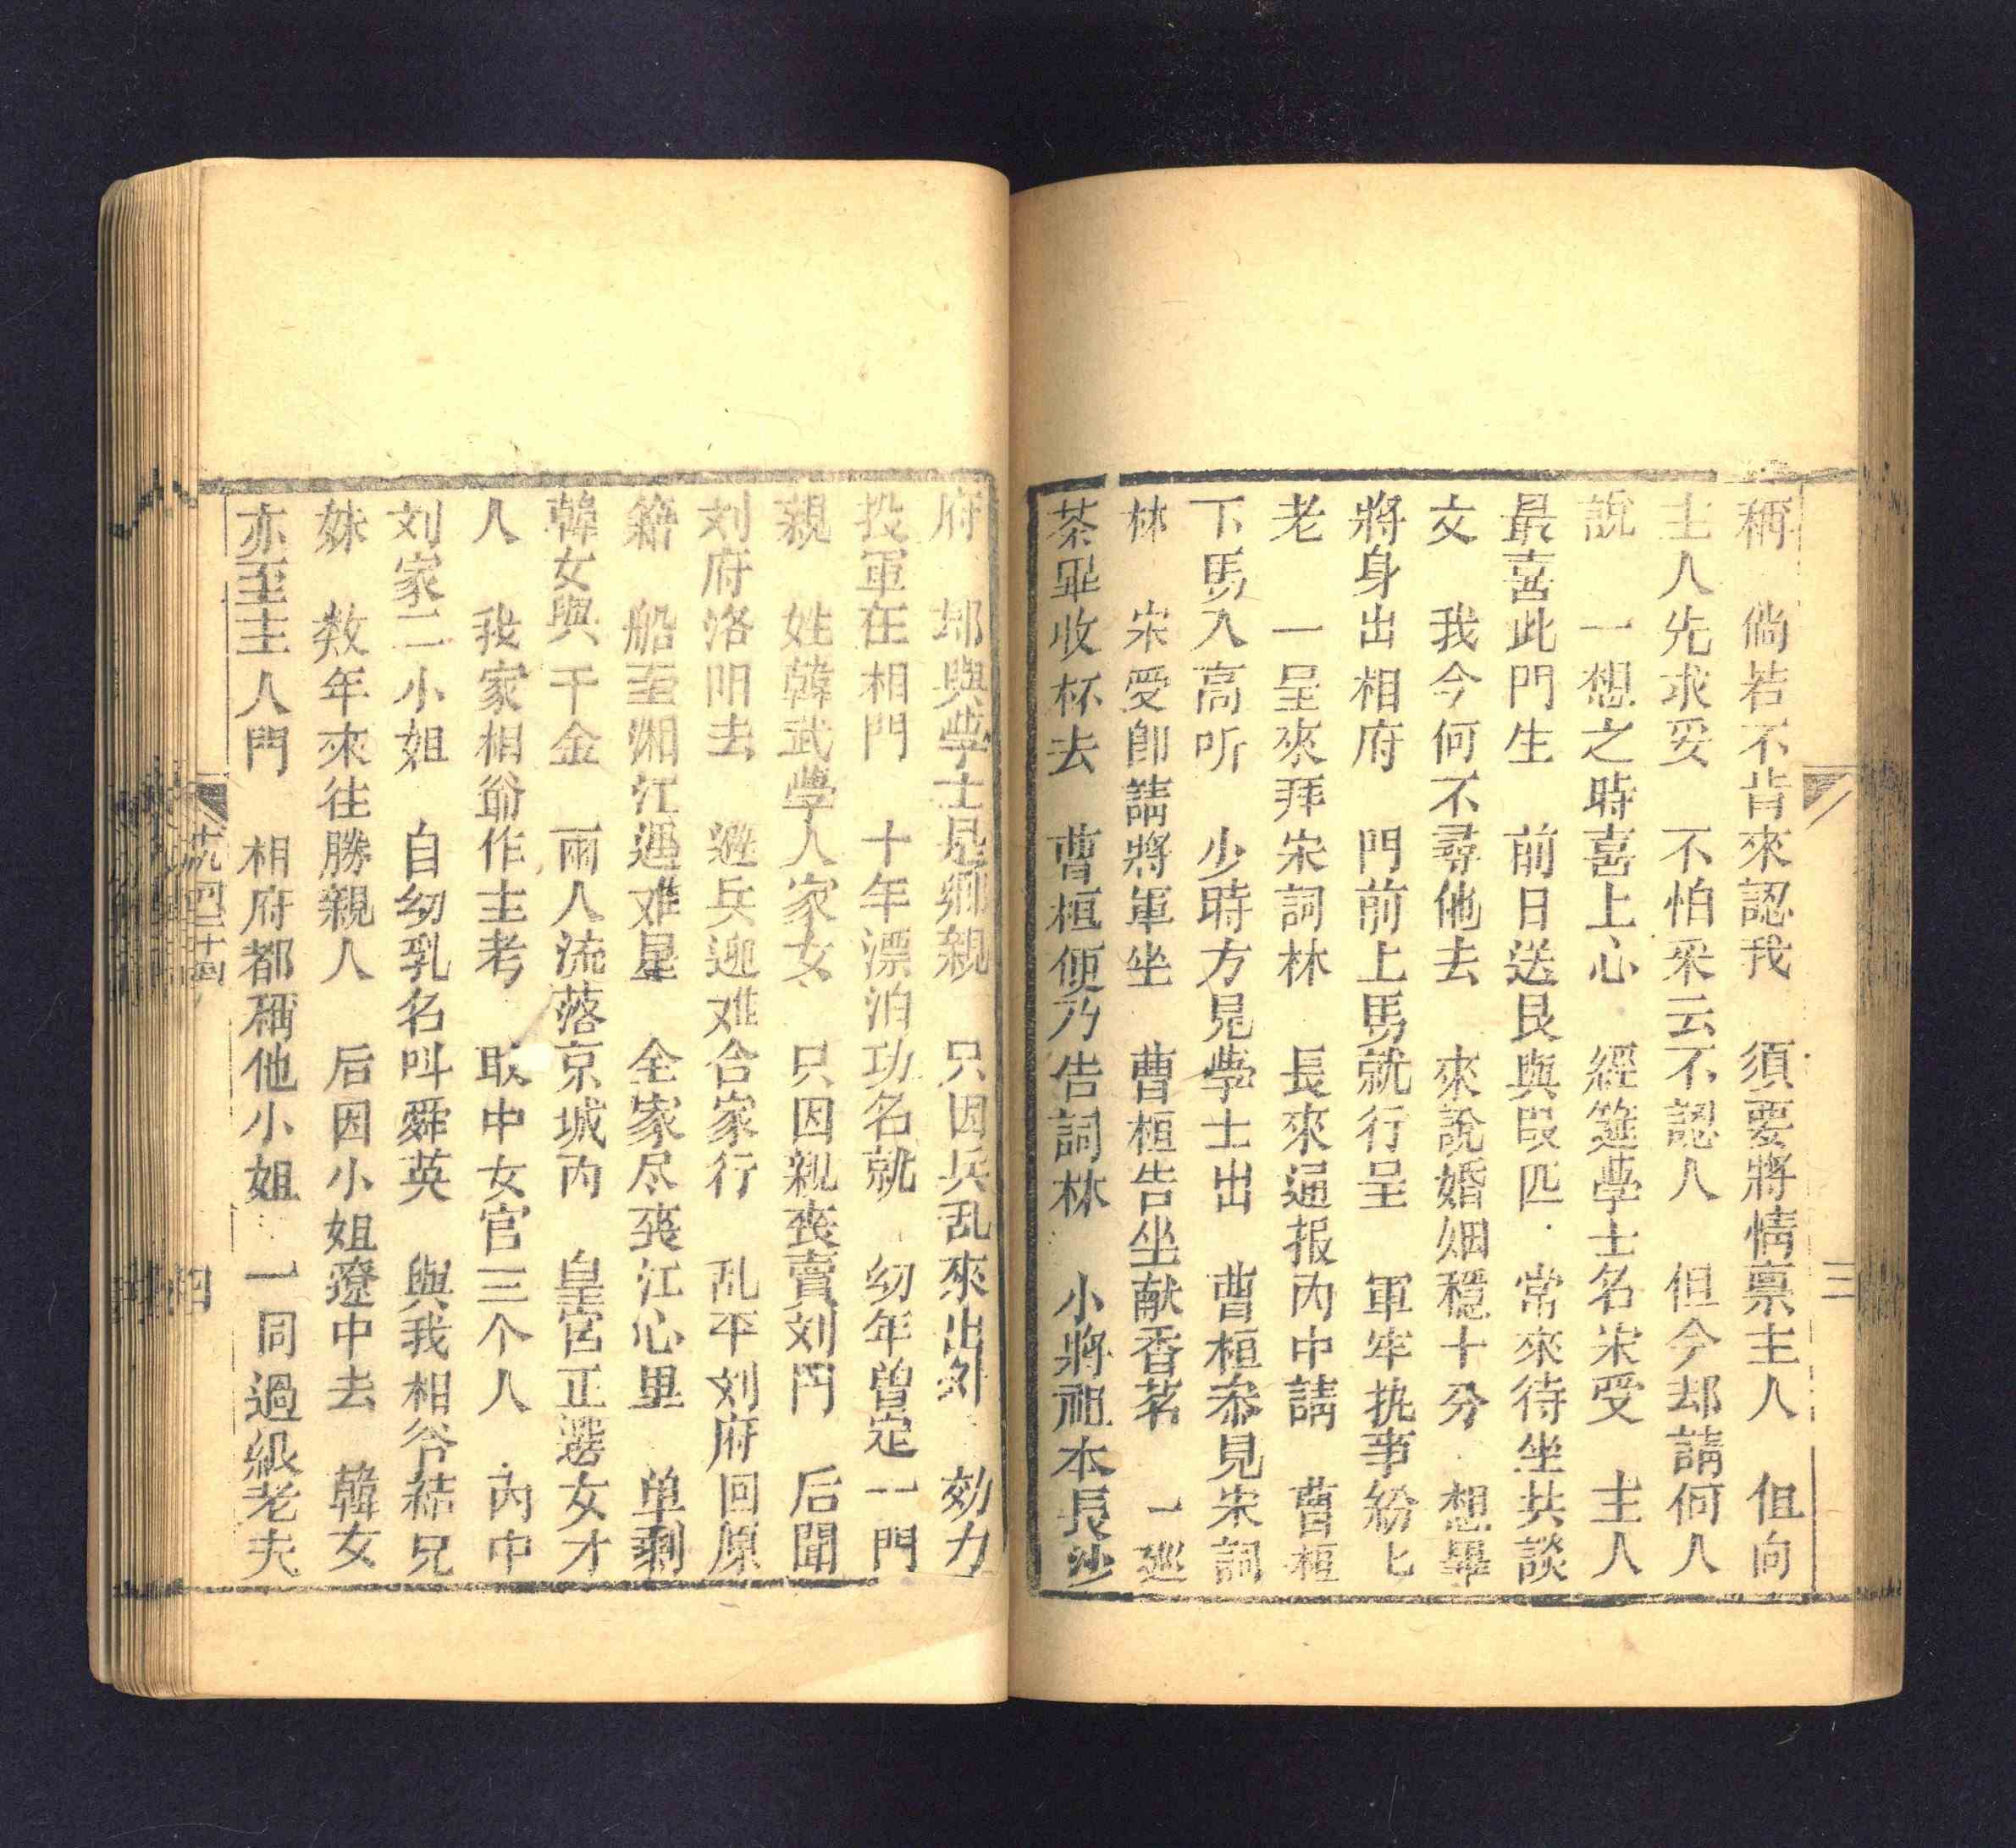 稱　倘若不肯來認我　須要將情禀主人　但向
主人先求妥　不怕采云不認人　但今却請何人
說　一想之時喜上心　經筵學士名宋受　主人
最喜此門生　前日送艮與段匹　常來待坐共談
文　我今何不尋他去　來說婚姻穩十分　想畢
將身出相府　門前上馬就行呈　軍牢执事紛匕
老　一呈來拜宋詞林　長來通报内中請　曹桓
下馬入高听　少時方見學士出　曹桓叅見宋詞
林　宋受即請將軍坐　曹桓告坐献香茗　一廵
茶罷收杯去　曹桓便乃告詞林　小將祖本長沙
三
府　邦與學士是鄉親　只因兵乱來出外　効力
投軍在相門　十年漂泊功名就　幼年曾定一門
親　姓韓武學人家女　只因親丧賣刘門　后聞
刘府洛阳去　避兵迎难合家行　乱平刘府回原
籍　船至湘江遇难星　全家尽丧江心里　单剩
韓女與千金　兩人流落京城内　皇宫正選女才
人　我家相爺作主考　取中女官三个人　内中
刘家二小姐　自幼乳名叫舜英　與我相爷結兄
妹　数年來往勝親人　后因小姐遼中去　韓女
亦至主人門　相府都稱他小姐　一同過繼老夫
四